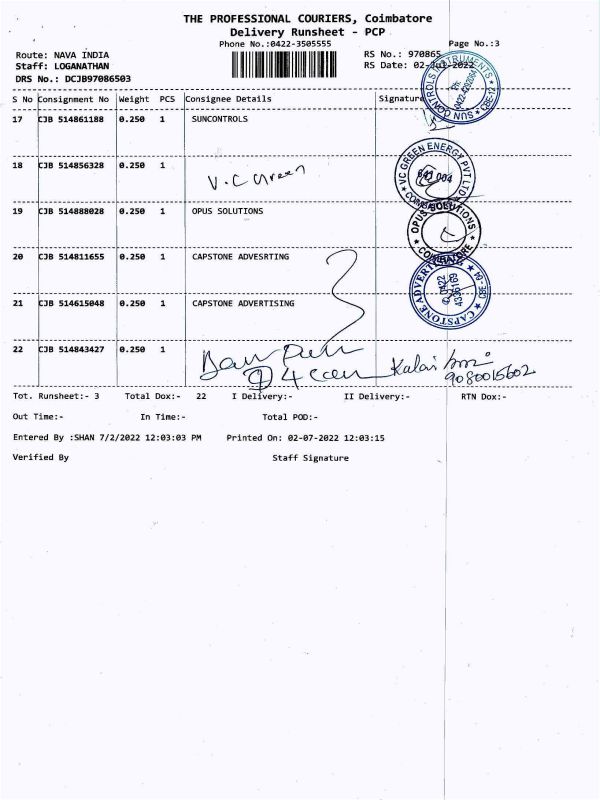 THE PROFESSIONAL COURIERS, Coimbatore
Delivery Runsheet - PCP
Phone No.:0422-3505555
Page No.:3
Route: NAVA INDIA
RS No.: 970865
Staff: LOGANATHAN
RS Date: 02-Jul-2022
DRS No.: DCJB97086503
S No Consignment No Weight PCS Consignee Details Signature
17 CJB 514861188 0.250 1 SUNCONTROLS
SUN CONTROLS INSTRUMENTS CBE-12
18 CJB 514856328 0.250 1 V.C Green
VC GREEN ENERGY PVT LTD
641 004
19 CJB 514888028 0.250 1 OPUS SOLUTIONS
OPUS SOLUTIONS COIMBATORE
20 CJB 514811655 0.250 1 CAPSTONE ADVESRTING
21 CJB 514615048 0.250 1 CAPSTONE ADVERTISING
CAPSTONE ADVERTISING CBE-04
22 CJB 514843427 0.250 1
9080015602
Tot. Runsheet:- 3 Total Dox:- 22 I Delivery:- II Delivery:- RTN Dox:-
Out Time:- In Time:- Total POD:-
Entered By :SHAN 7/2/2022 12:03:03 PM Printed On: 02-07-2022 12:03:15
Verified By Staff Signature